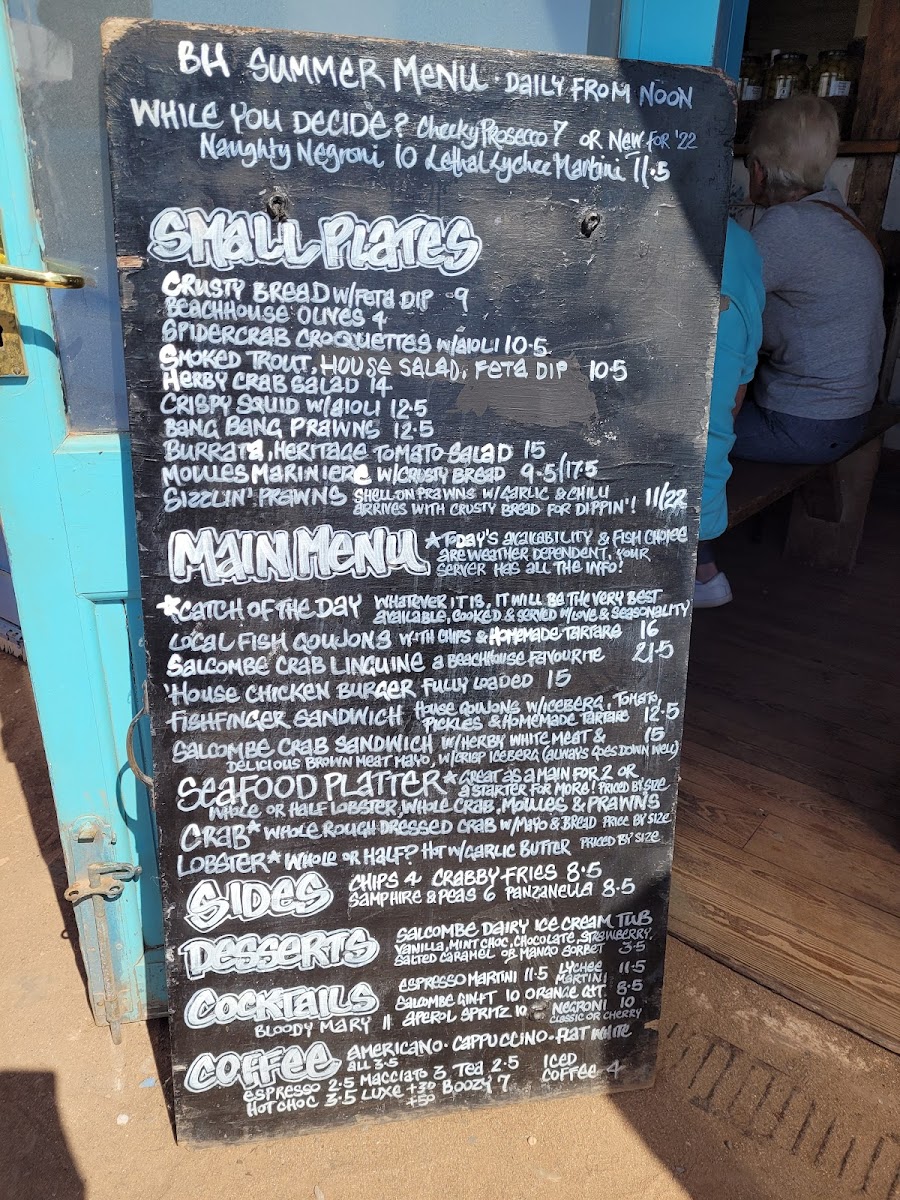 BH SUMMER MENU · DAILY FROM NOON
WHILE YOU DECIDE? Cheeky Prosecco 7 OR NEW FOR '22
Naughty Negroni 10 Lethal Lychee Martini 11.5
SMALL PLATES
CRUSTY BREAD W/FETA DIP 9
BEACHHOUSE OLIVES 4
SPIDERCRAB CROQUETTES W/AIOLI 10.5
SMOKED TROUT, HOUSE SALAD, FETA DIP 10.5
HERBY CRAB SALAD 14
CRISPY SQUID W/AIOLI 12.5
BANG BANG PRAWNS 12.5
BURRATA, HERITAGE TOMATO SALAD 15
MOULES MARINIERE W/CRUSTY BREAD 9.5/17.5
SIZZLIN' PRAWNS SHELL ON PRAWNS W/GARLIC & CHILLI
ARRIVES WITH CRUSTY BREAD FOR DIPPIN'! 11/22
MAIN MENU *TODAY'S AVAILABILITY & FISH CHOICE
ARE WEATHER DEPENDENT, YOUR
SERVER HAS ALL THE INFO!
*CATCH OF THE DAY WHATEVER IT IS, IT WILL BE THE VERY BEST
AVAILABLE, COOKED & SERVED W/LOVE & SEASONALITY
LOCAL FISH GOUJONS WITH CHIPS & HOMEMADE TARTARE 16
SALCOMBE CRAB LINGUINE A BEACHHOUSE FAVOURITE 21.5
HOUSE CHICKEN BURGER FULLY LOADED 15
FISHFINGER SANDWICH HOUSE GOUJONS W/ICEBERG, TOMATO,
PICKLES & HOMEMADE TARTARE 12.5
SALCOMBE CRAB SANDWICH W/HERBY WHITE MEAT & 15
DELICIOUS BROWN MEAT MAYO, W/CRISP ICEBERG (ALWAYS GOES DOWN WELL)
SEAFOOD PLATTER* GREAT AS A MAIN FOR 2 OR
A STARTER FOR MORE! PRICED BY SIZE
WHOLE OR HALF LOBSTER, WHOLE CRAB, MOULES & PRAWNS
CRAB* WHOLE ROUGH DRESSED CRAB W/MAYO & BREAD PRICE BY SIZE
LOBSTER* WHOLE OR HALF? HOT W/GARLIC BUTTER PRICED BY SIZE
SIDES CHIPS 4 CRABBY FRIES 8.5
SAMPHIRE & PEAS 6 PANZANELLA 8.5
DESSERTS SALCOMBE DAIRY ICE CREAM TUB
VANILLA, MINT CHOC, CHOCOLATE, STRAWBERRY,
SALTED CARAMEL OR MANGO SORBET 3.5
COCKTAILS ESPRESSO MARTINI 11.5 LYCHEE MARTINI 11.5
SALCOMBE GIN+T 10 ORANGE G+T 8.5
BLOODY MARY 11 APEROL SPRITZ 10 NEGRONI 10
CLASSIC OR CHERRY
COFFEE AMERICANO · CAPPUCCINO · FLAT WHITE
ALL 3.5
ESPRESSO 2.5 MACCIATO 3 TEA 2.5 ICED COFFEE 4
HOT CHOC 3.5 LUXE +50 BOOZY 7